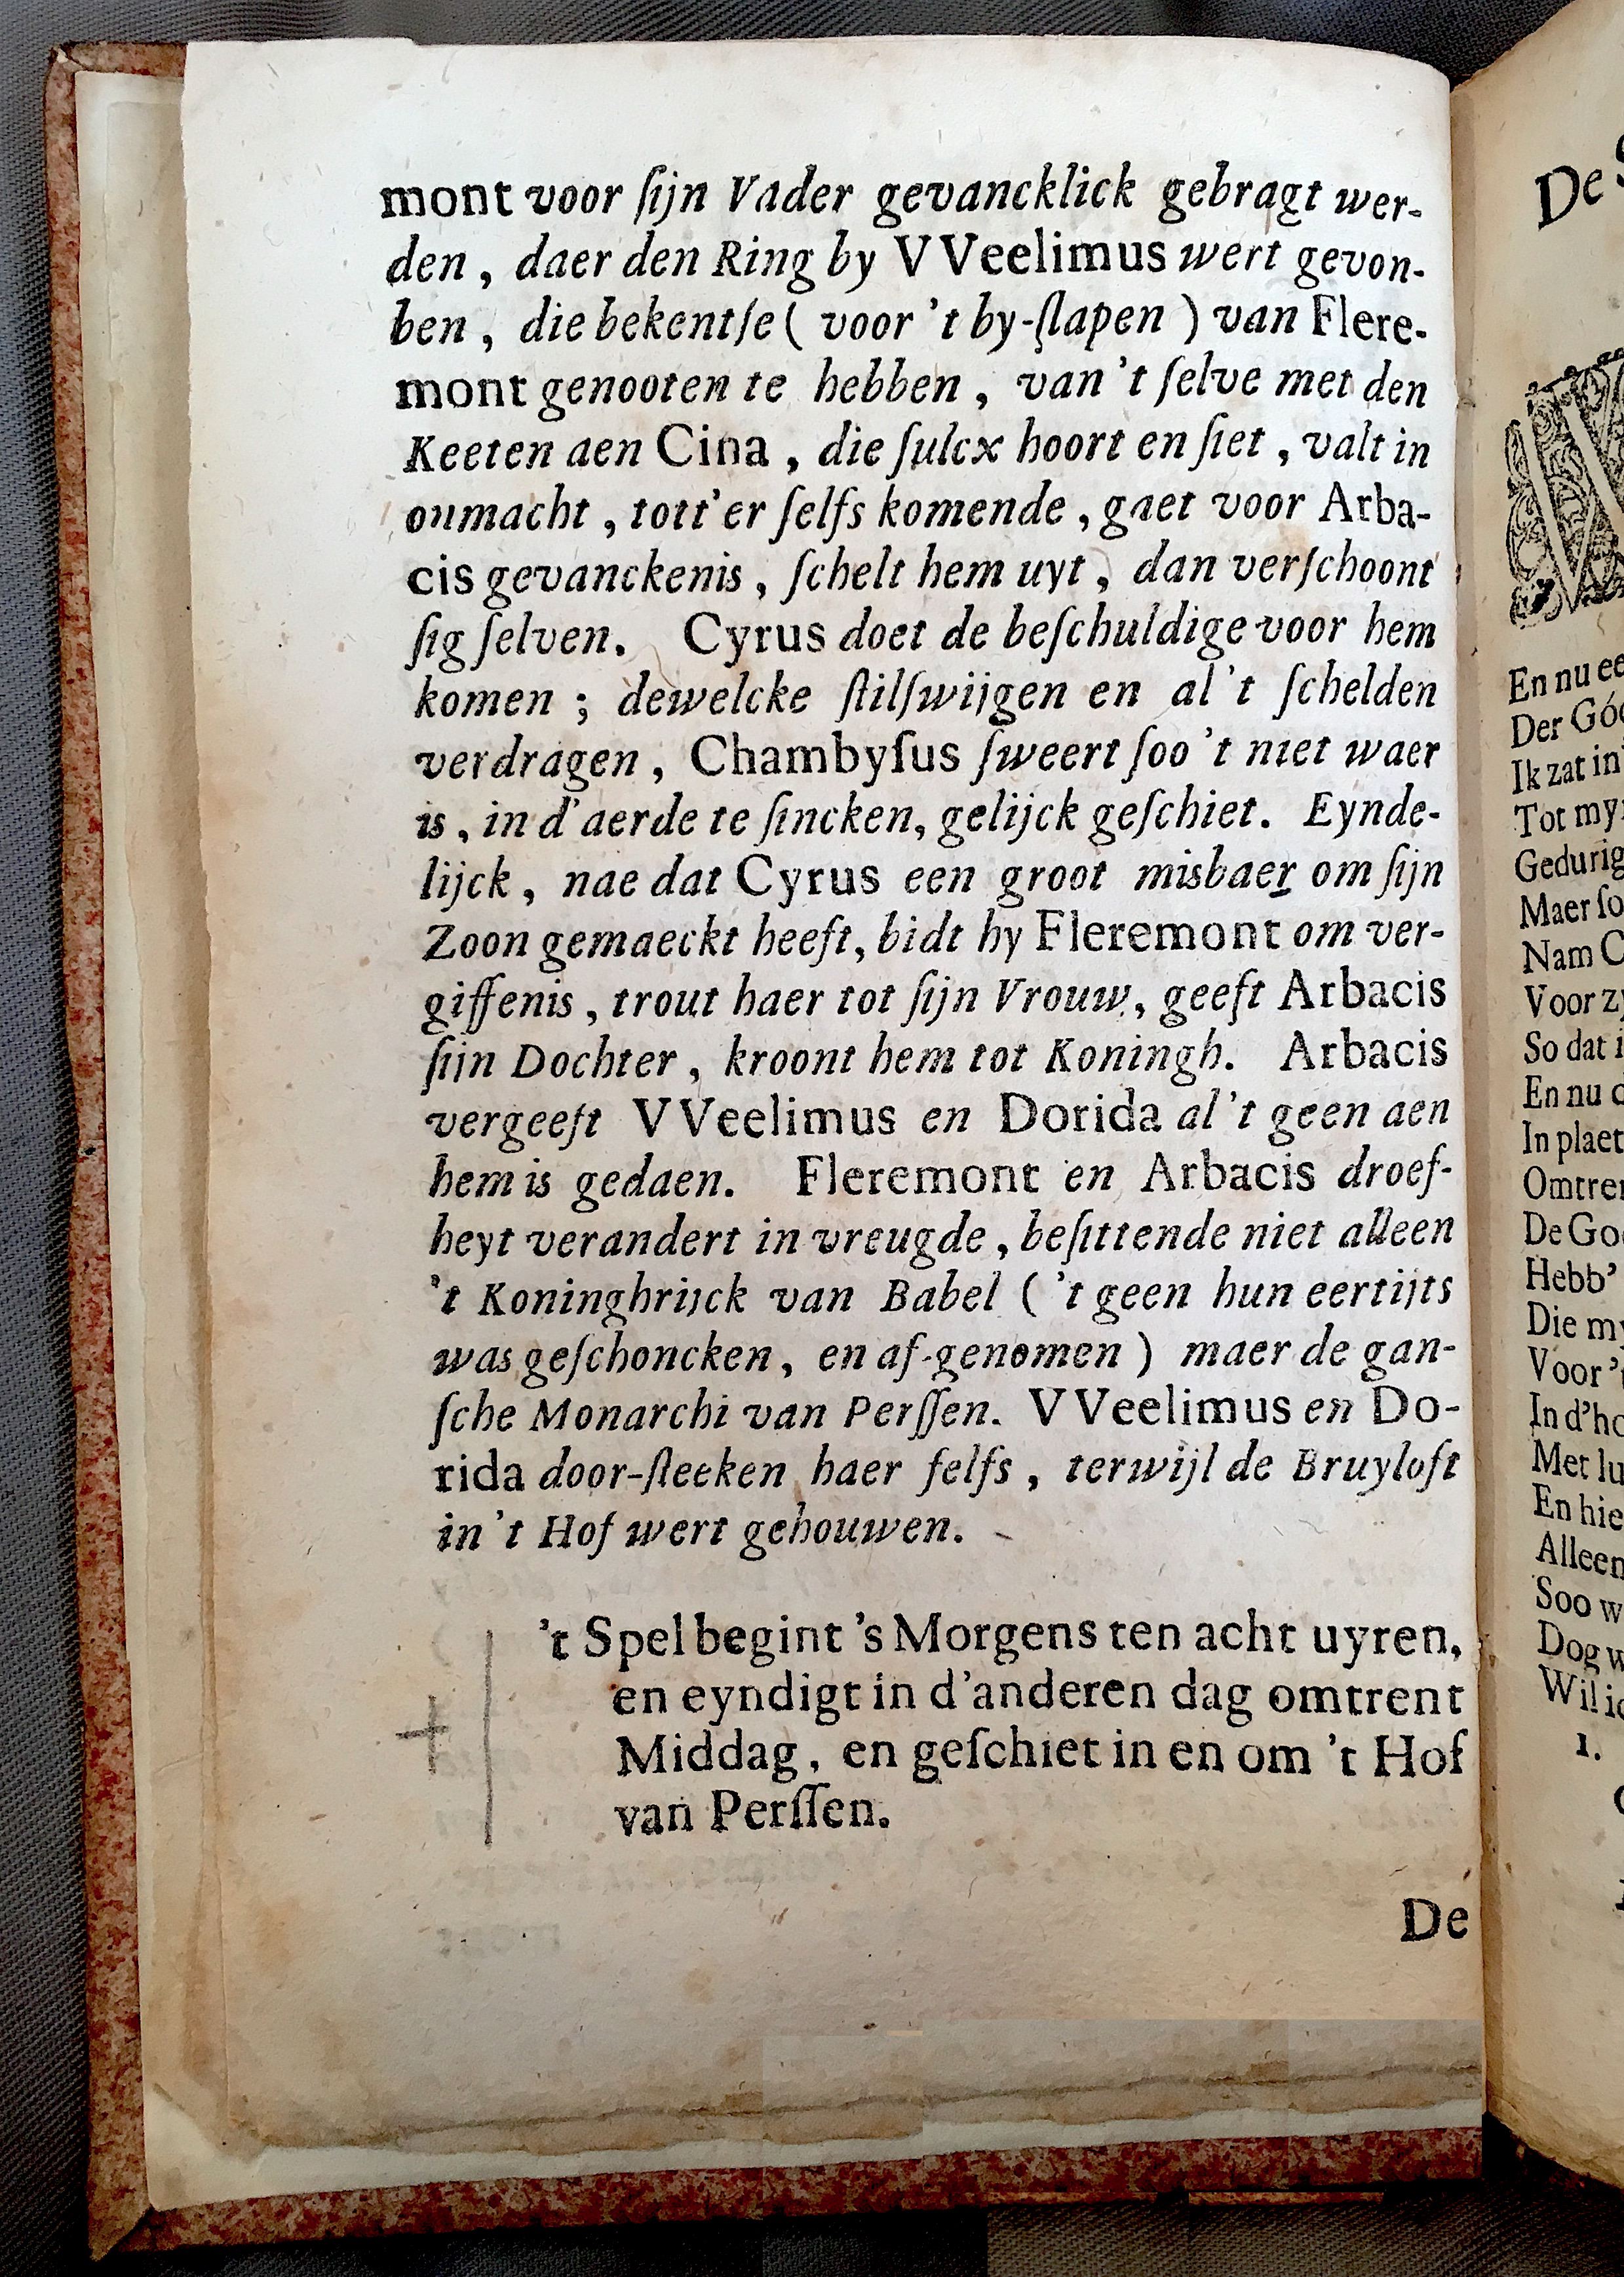 mont voor ſijn Vader gevancklick gebragt wer-
den, daer den Ring by VVeelimus wert gevon-
ben, die bekentſe ( voor 't by-ſlapen ) van Flere-
mont genooten te hebben, van 't ſelve met den
Keeten aen Cina, die ſulcx hoort en ſiet, valt in
onmacht, tott'er ſelfs komende, gaet voor Arba-
cis gevanckenis, ſchelt hem uyt, dan verſchoont
ſig ſelven. Cyrus doet de beſchuldige voor hem
komen; dewelcke ſtilſwijgen en al 't ſchelden
verdragen, Chambyſus ſweert ſoo 't niet waer
is, in d'aerde te ſincken, gelijck geſchiet. Eynde-
lijck, nae dat Cyrus een groot misbaer om ſijn
Zoon gemaeckt heeft, bidt hy Fleremont om ver-
giffenis, trout haer tot ſijn Vrouw, geeft Arbacis
ſijn Dochter, kroont hem tot Koningh. Arbacis
vergeeft VVeelimus en Dorida al 't geen aen
hem is gedaen. Fleremont en Arbacis droef-
heyt verandert in vreugde, beſittende niet alleen
't Koninghrijck van Babel ( 't geen hun eertijts
was geſchoncken, en af-genomen ) maer de gan-
ſche Monarchi van Perſſen. VVeelimus en Do-
rida door-ſteeken haer felfs, terwijl de Bruyloft
in 't Hof wert gehouwen.
't Spel begint 's Morgens ten acht uyren,
en eyndigt in d'anderen dag omtrent
Middag, en geſchiet in en om 't Hof
van Perſſen.
De
De
En nu
Der
Ik zat in
Tot
Gedurig
Maer
Nam
Voor
So dat
En nu
In
De
Hebb'
Die
Voor
In
Met
En hie
Alleen
Soo
Dog
Wil
1.